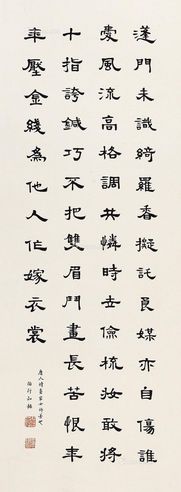 蓬門未識綺羅香擬託良媒亦自傷誰
愛風流高格調共憐時世儉梳妝敢將
十指誇鍼巧不把雙眉鬥畫長苦恨年
年壓金綫為他人作嫁衣裳
唐人詩